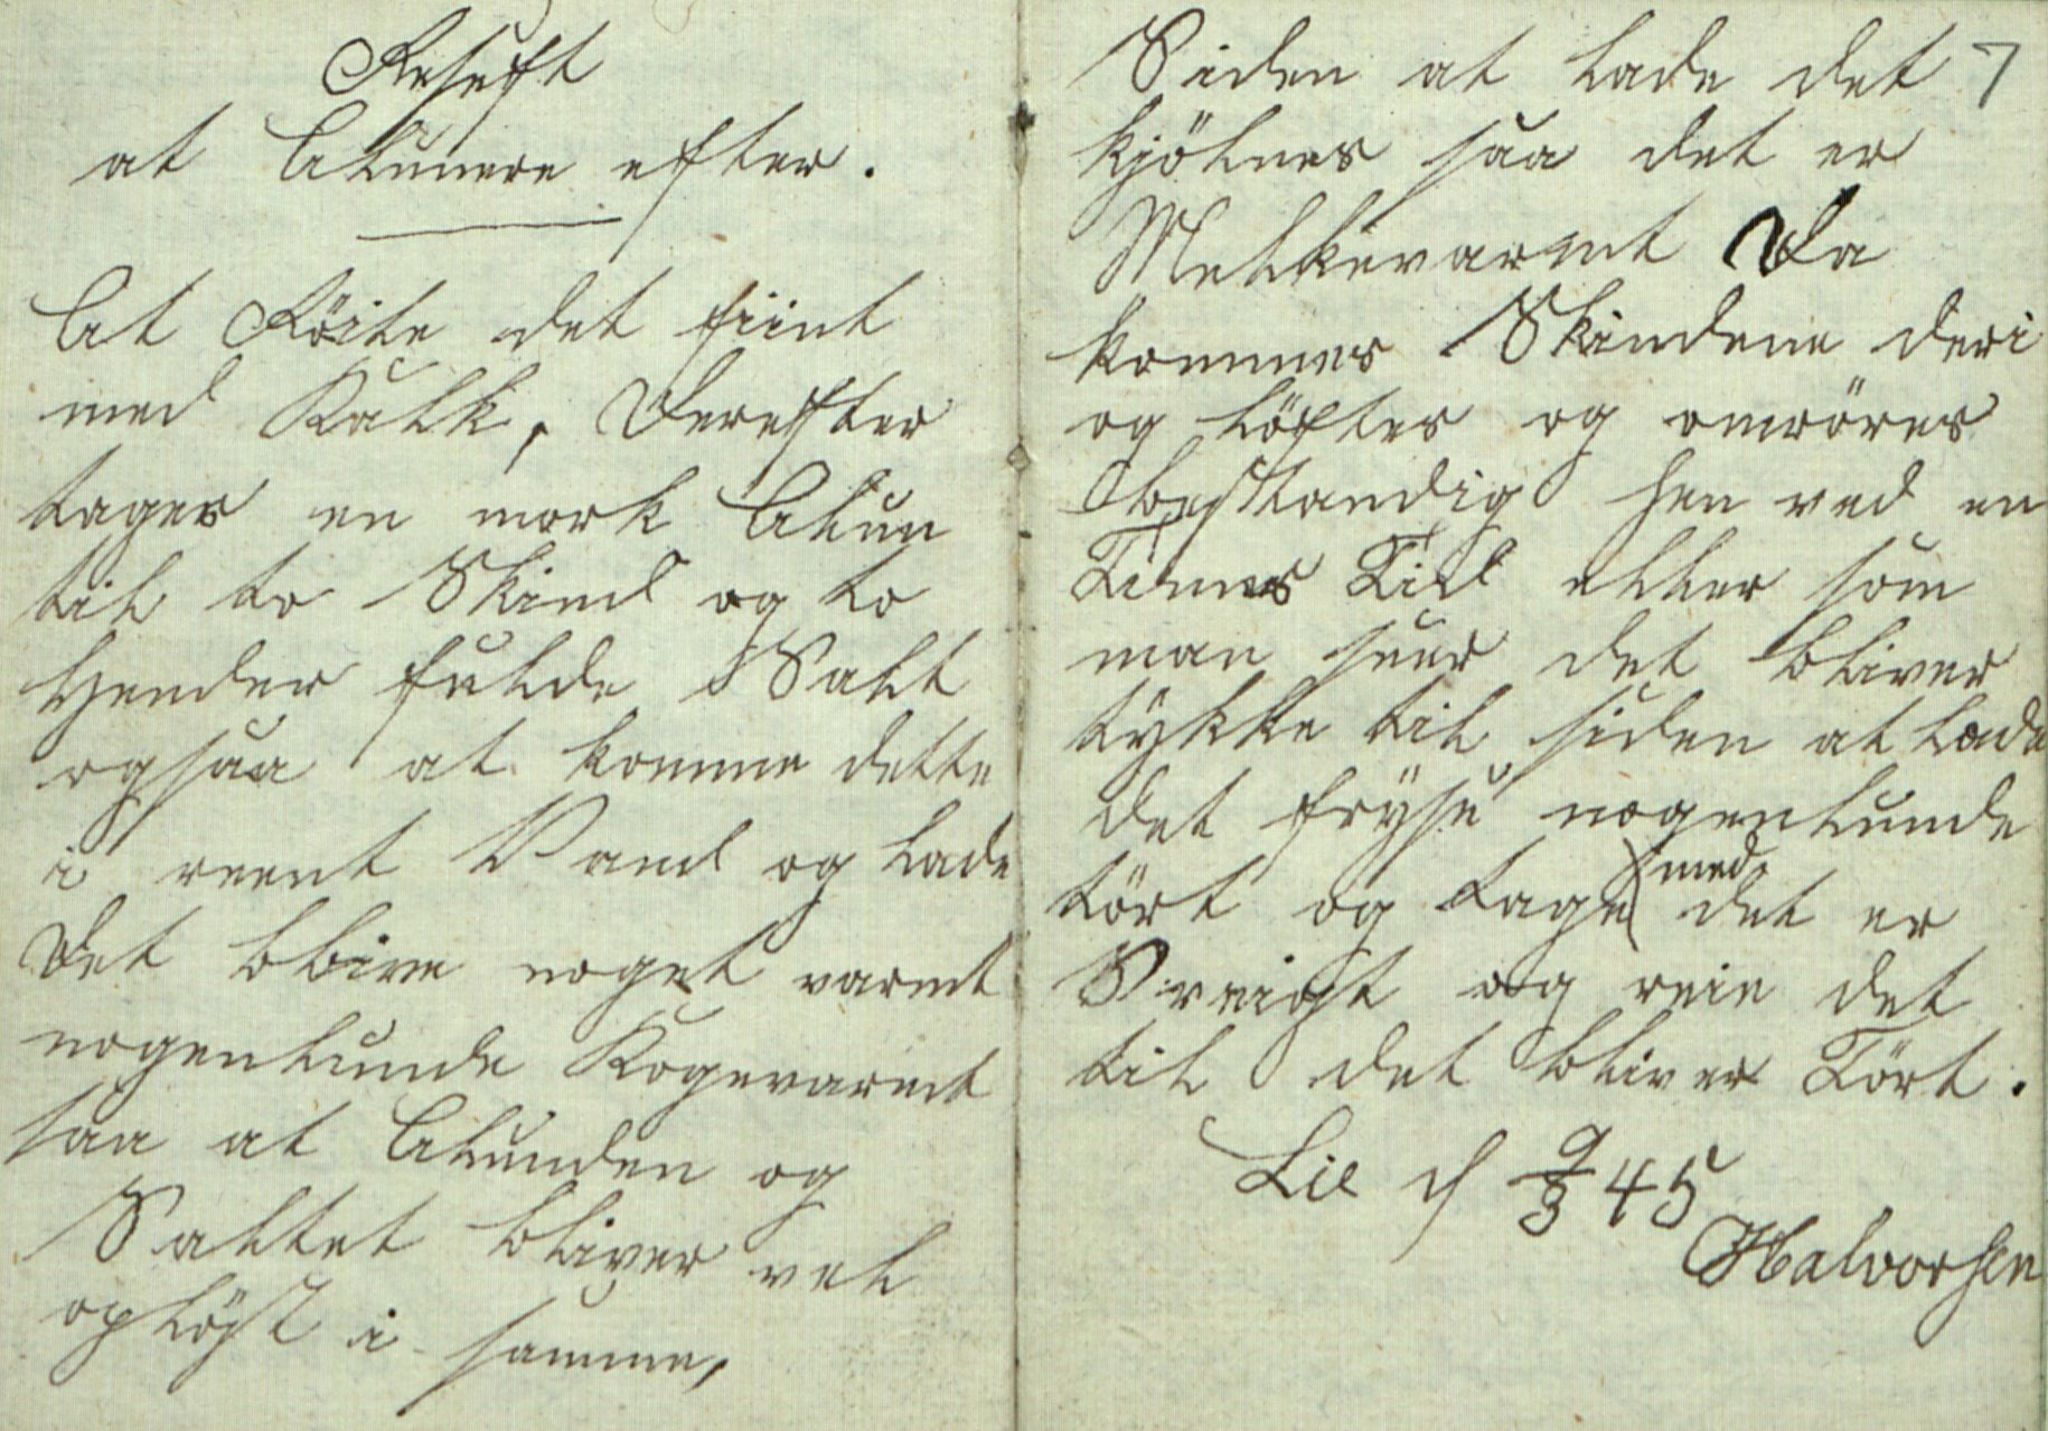 Reseft
at Alunere efter.
At Röite det fiint
med Kalk, Derefter
tages en mork Alun
til to Skind og to
Hender fulde Salt
ogsaa at komme dette
i reent Vand og lade
Det blive noget varmt
nogenlunde Kogevarmt
saa at Alunden og
Saltet bliver vel
opløst i samme,
Siden at lade det 7
kjölnes saa det er
Melkevarmt Da
kommes Skindene deri
og löftes og omröres
bestandig hen ved en
Times Tid eller som
man seer det bliver
tykke til siden at lade
det fryse nogenlunde
tört og tage med det er
og reie det
til det bliver Tört.
Lie d 9/3 45
Halvorsen